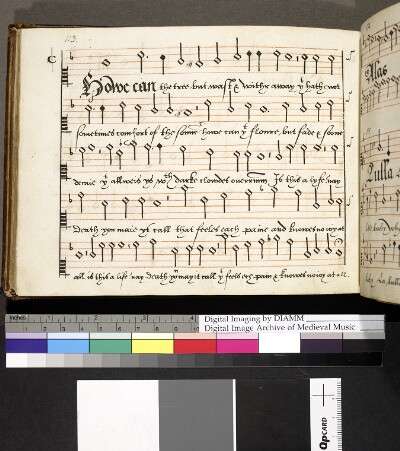 113.
Howe can the tree but wast & wither away yt hath not
sometimes comfort of the sonne howe can yt flowre, but fade & soone
decaie yt allweis ys wth darke clowdes overronn, Is this a lyfe nay
death you maie yt call that feeles each paine and knowes no ioy at
all is this a life nay death you may it call yt feels ery pain & knowes no ioy at all.
Alas
inches
1 2 3 4
Digital Imaging by DIAMM
Digital Image Archive of Medieval Music
QPCARD